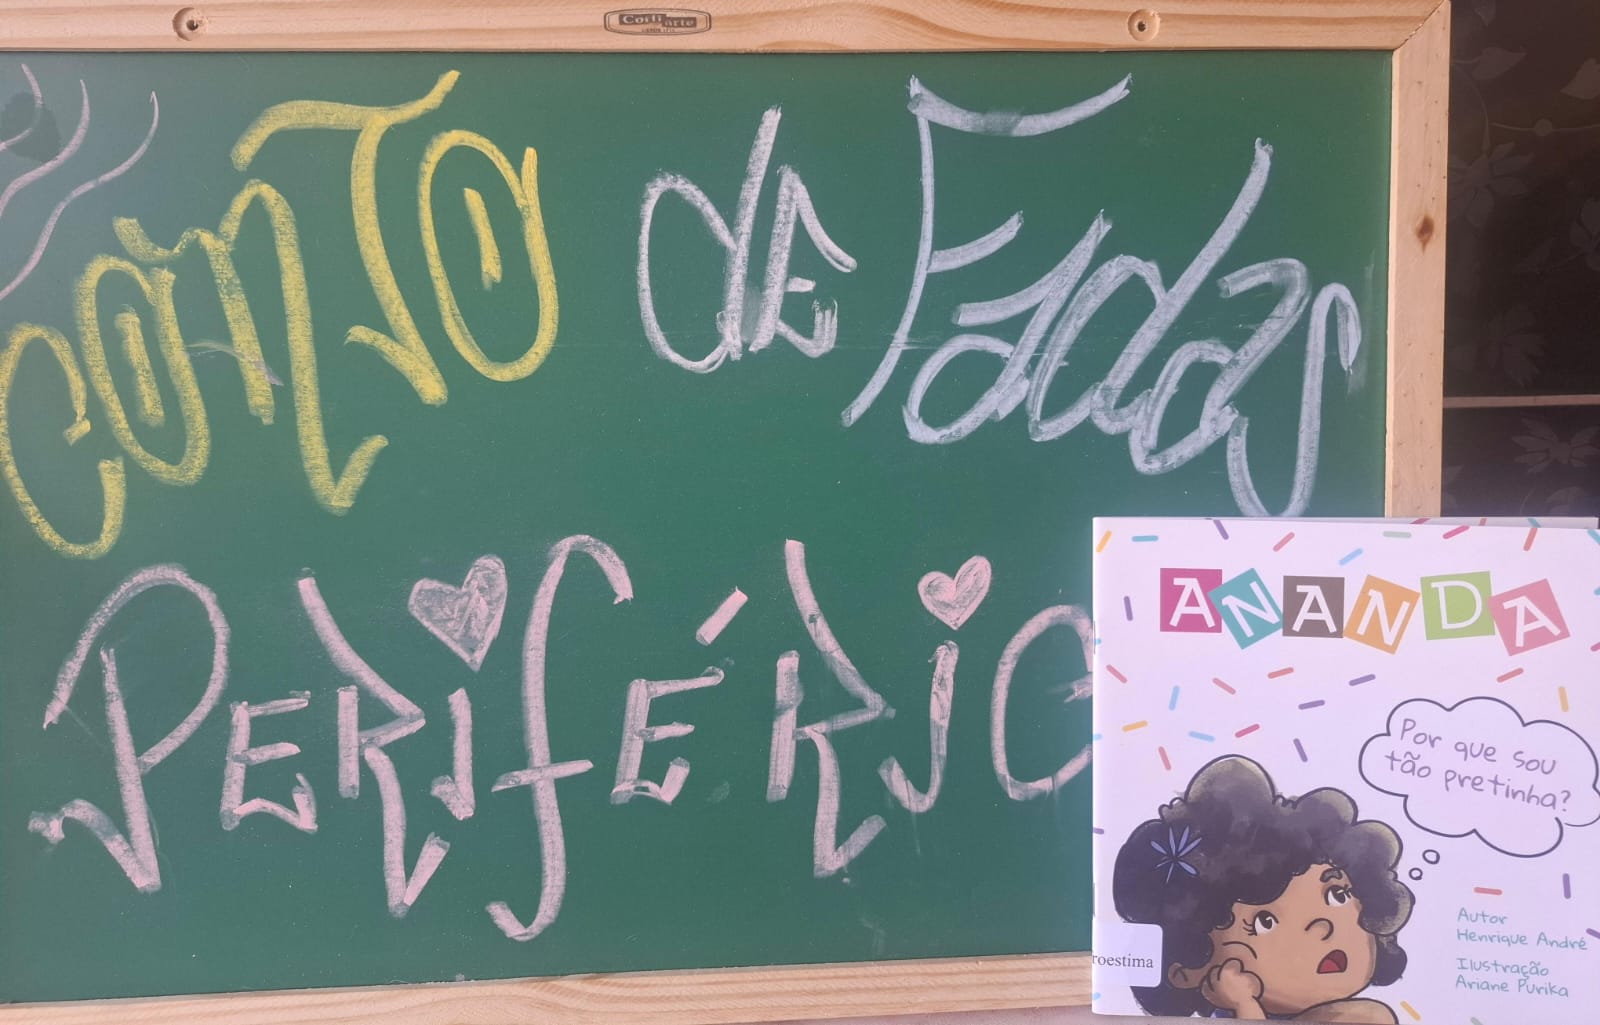 Corfi arte
CONTO de Fadas
PERIFÉRIC
ANANDA
Por que sou
tão pretinha?
Autor
Henrique André
Ilustração
Ariane Purika
roestima